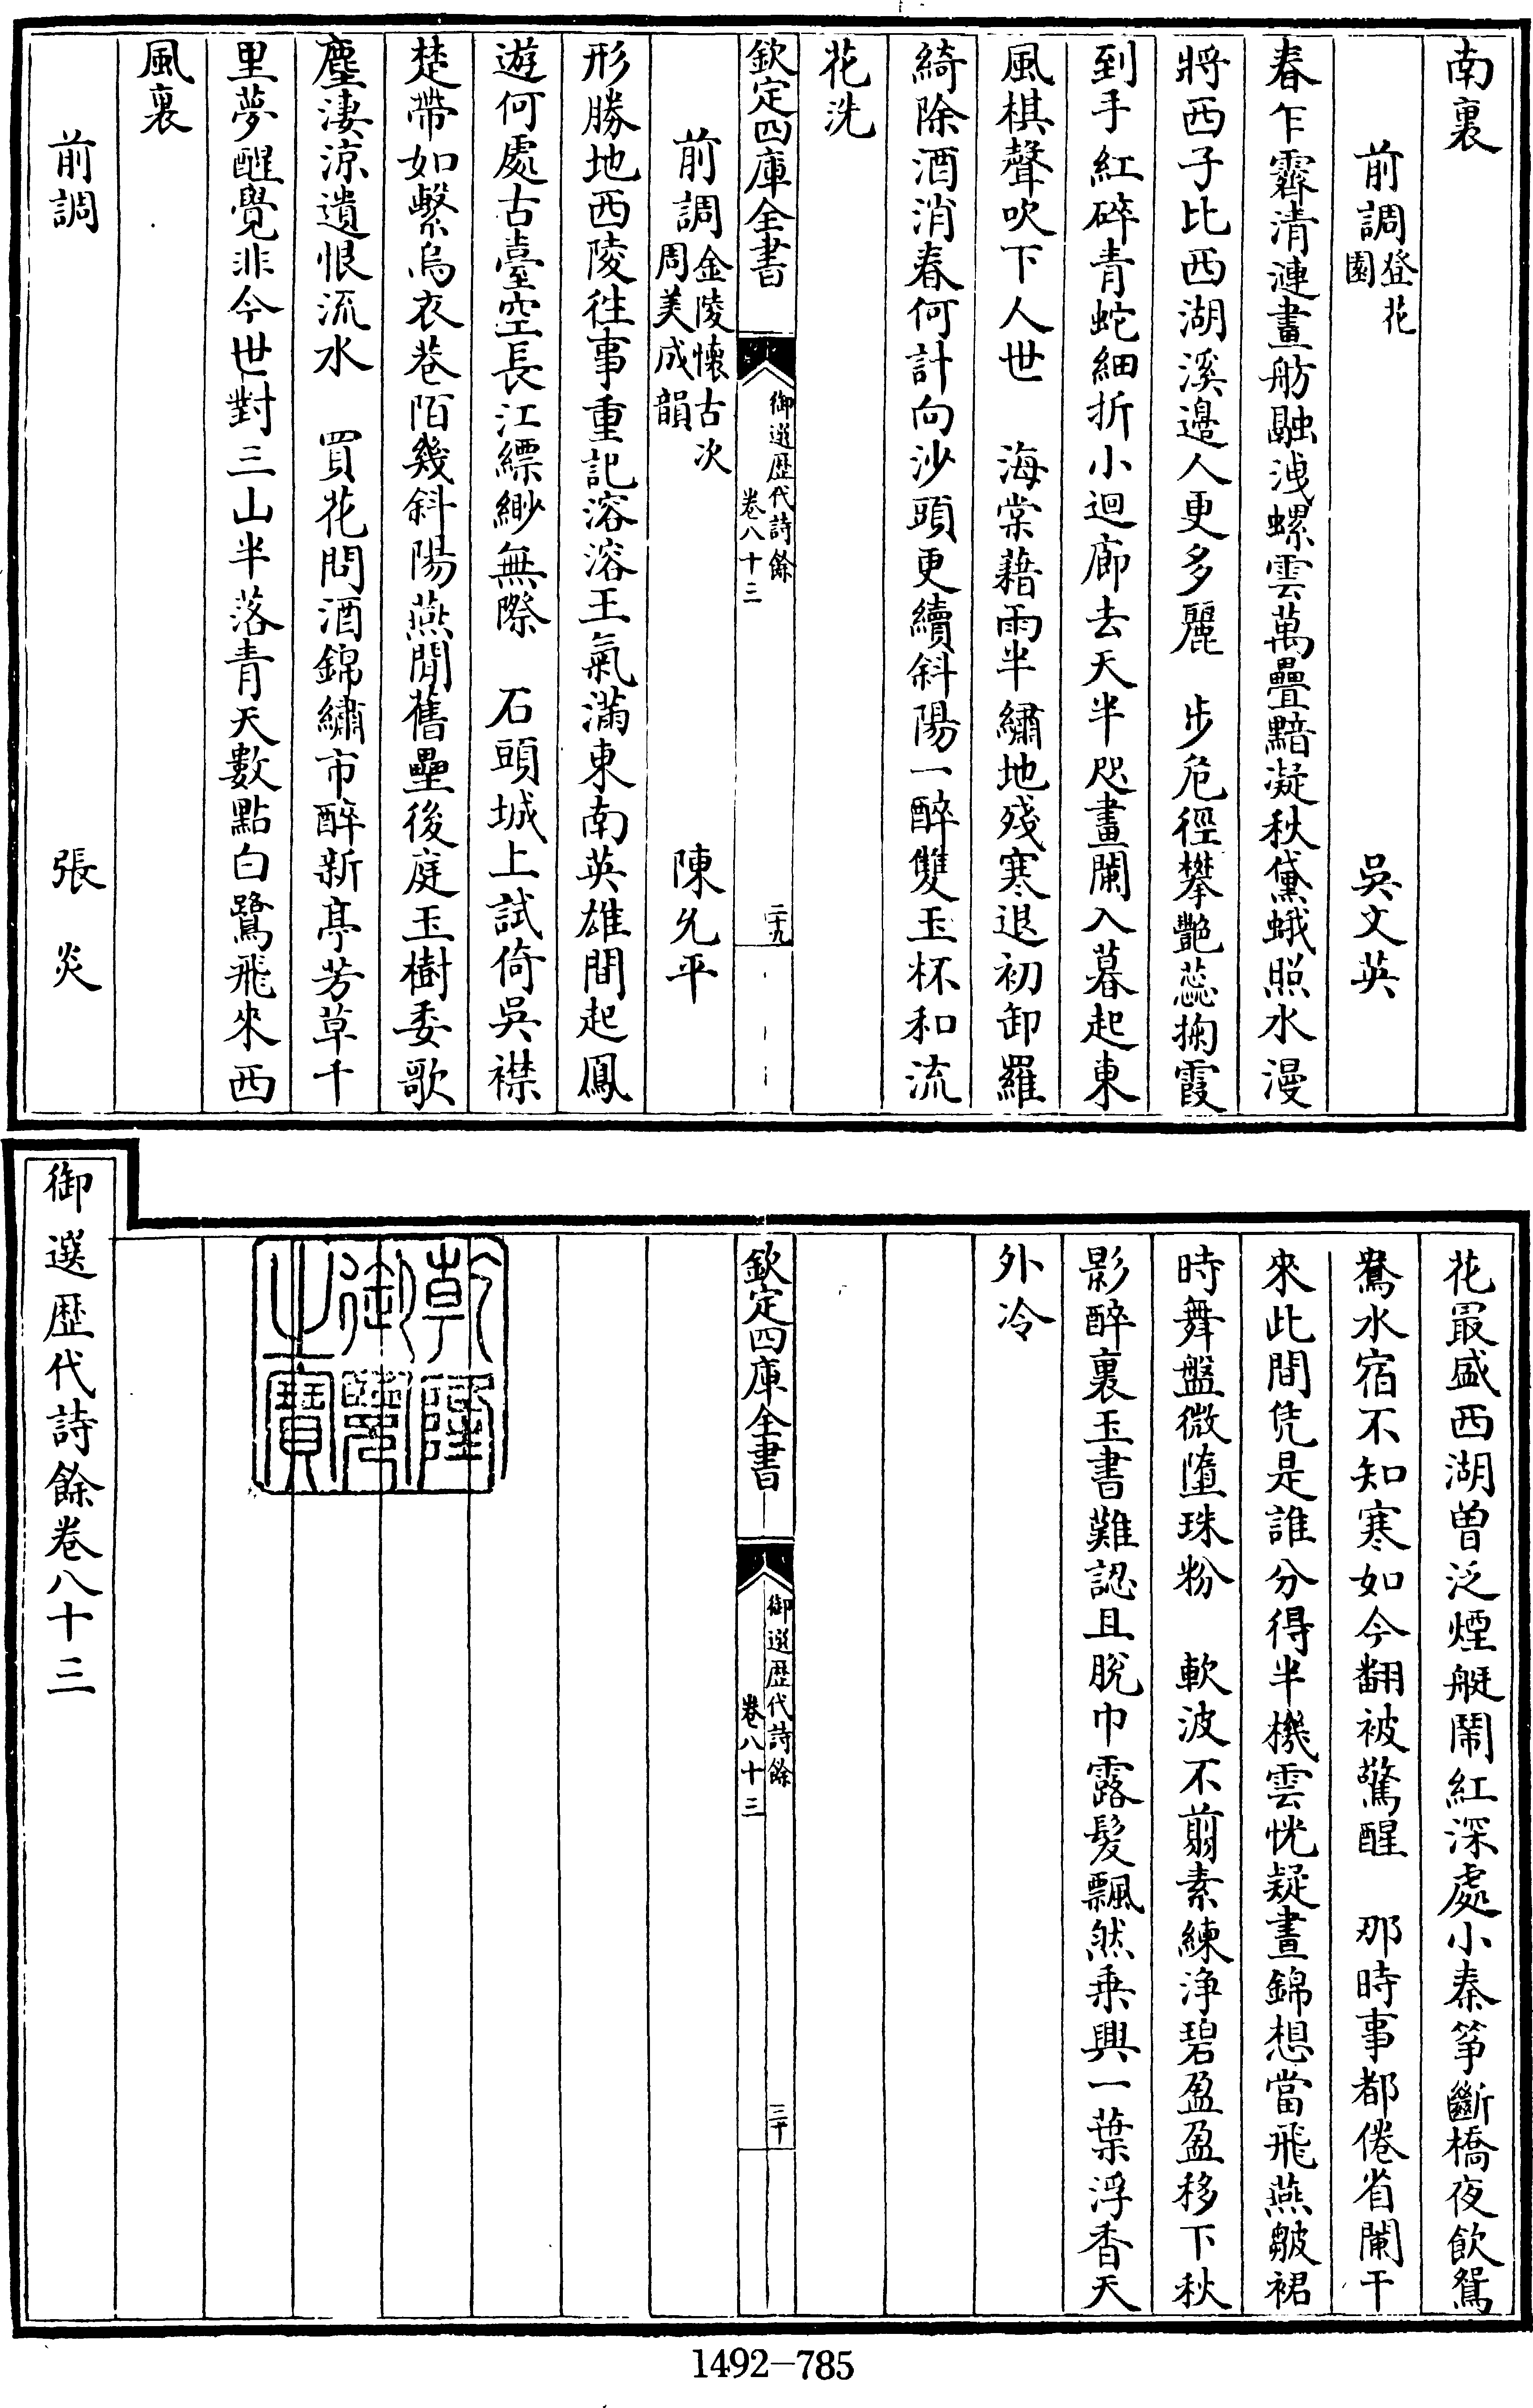 南裏
前調登花園 吳文英
春乍霽清漣畫舫融洩螺雲萬疊黯凝秋黛蛾照水漫
將西子比西湖溪邊人更多麗 步危徑攀艷蕊掬霞
到手紅碎青蛇細折小迴廊去天半咫畫闌入暮起東
風棋聲吹下人世 海棠藉雨半繡地殘寒退初卸羅
綺除酒消春何計向沙頭更續斜陽一醉雙玉杯和流
花洗
欽定四庫全書 御選歷代詩餘 卷八十三 二十九
前調金陵懷古次周美成韻 陳允平
形勝地西陵往事重記溶溶王氣滿東南英雄間起鳳
遊何處古臺空長江縹緲無際 石頭城上試倚吳襟
楚帶如繫烏衣巷陌幾斜陽燕閒舊壘後庭玉樹委歌
塵淒涼遺恨流水 買花問酒錦繡市醉新亭芳草千
里夢醒覺非今世對三山半落青天數點白鷺飛來西
風裏
前調 張炎
花最盛西湖曾泛煙艇鬧紅深處小秦箏斷橋夜飲鴛
鴦水宿不知寒如今翻被驚醒 那時事都倦省闌干
來此間凭是誰分得半機雲恍疑晝錦想當飛燕皺裙
時舞盤微墮珠粉 軟波不剪素練淨碧盈盈移下秋
影醉裏玉書難認且脫巾露髮飄然乘興一葉浮香天
外冷
欽定四庫全書 御選歷代詩餘 卷八十三 三十
乾隆御覽之寶
御選歷代詩餘卷八十三
1492-785